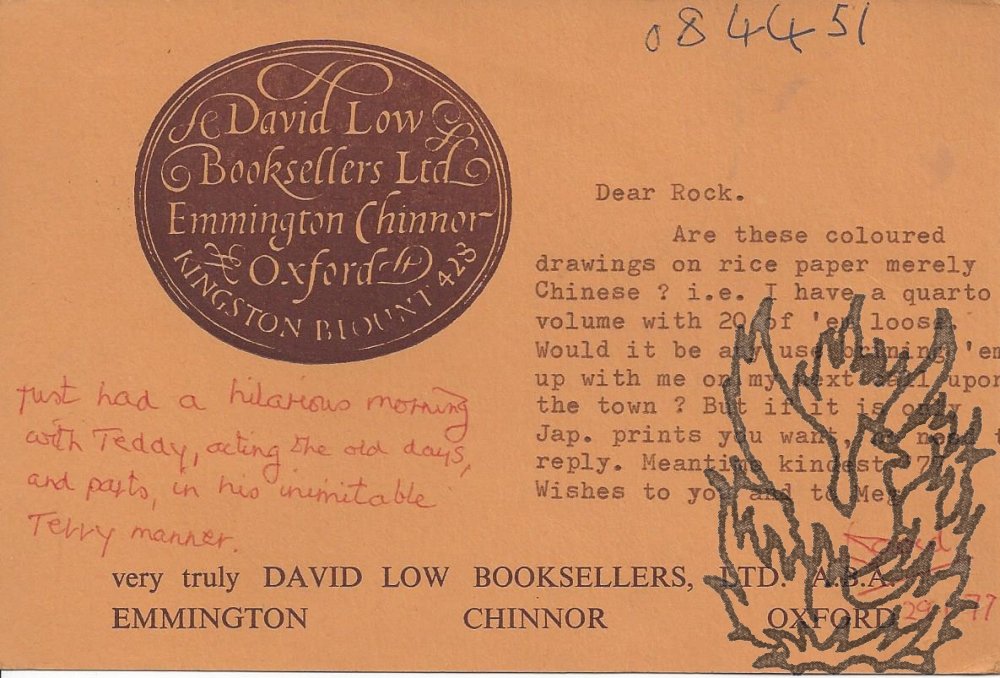 084451
David Low
Booksellers Ltd
Emmington Chinnor
Oxford
KINGSTON BLOUNT 428
Dear Rock.
Are these coloured
drawings on rice paper merely
Chinese ? i.e. I have a quarto
volume with 20 of 'em loose.
Would it be any use bringing 'em
up with me on my next call upon
the town ? But if it is only
Jap. prints you want, no need
reply. Meantime kindest '77
Wishes to you and to Meg
Just had a hilarious morning
with Teddy, acting the old days,
and parts, in his inimitable
Terry manner.
David
very truly DAVID LOW BOOKSELLERS, LTD. A.B.A.
EMMINGTON CHINNOR OXFORD
77